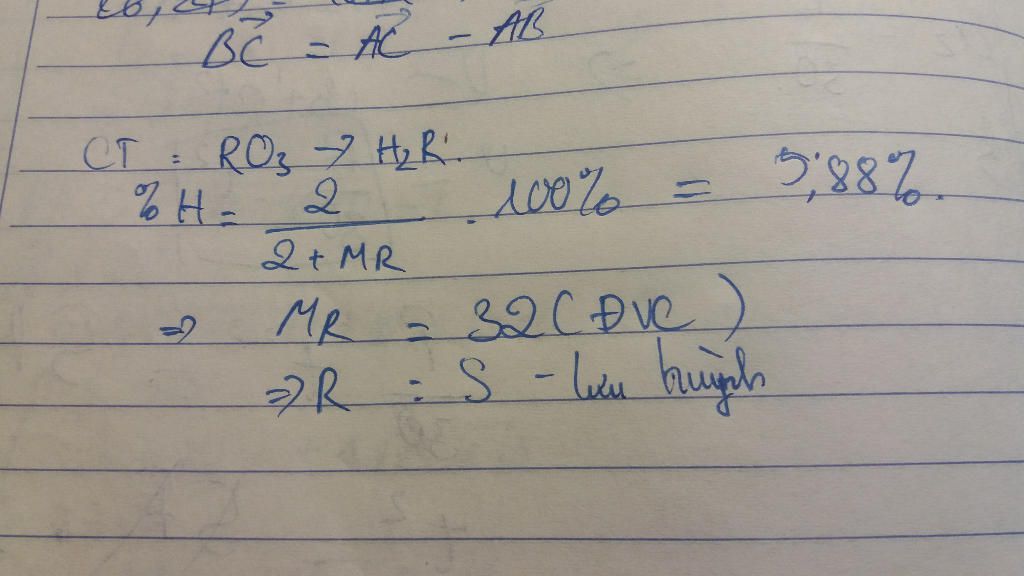 BC = AC - AB
CT : RO3 → H2R.
%H = 2 / 2 + MR . 100% = 5,88%.
⇒ MR = 32 (ĐVC)
⇒ R : S - lưu huỳnh